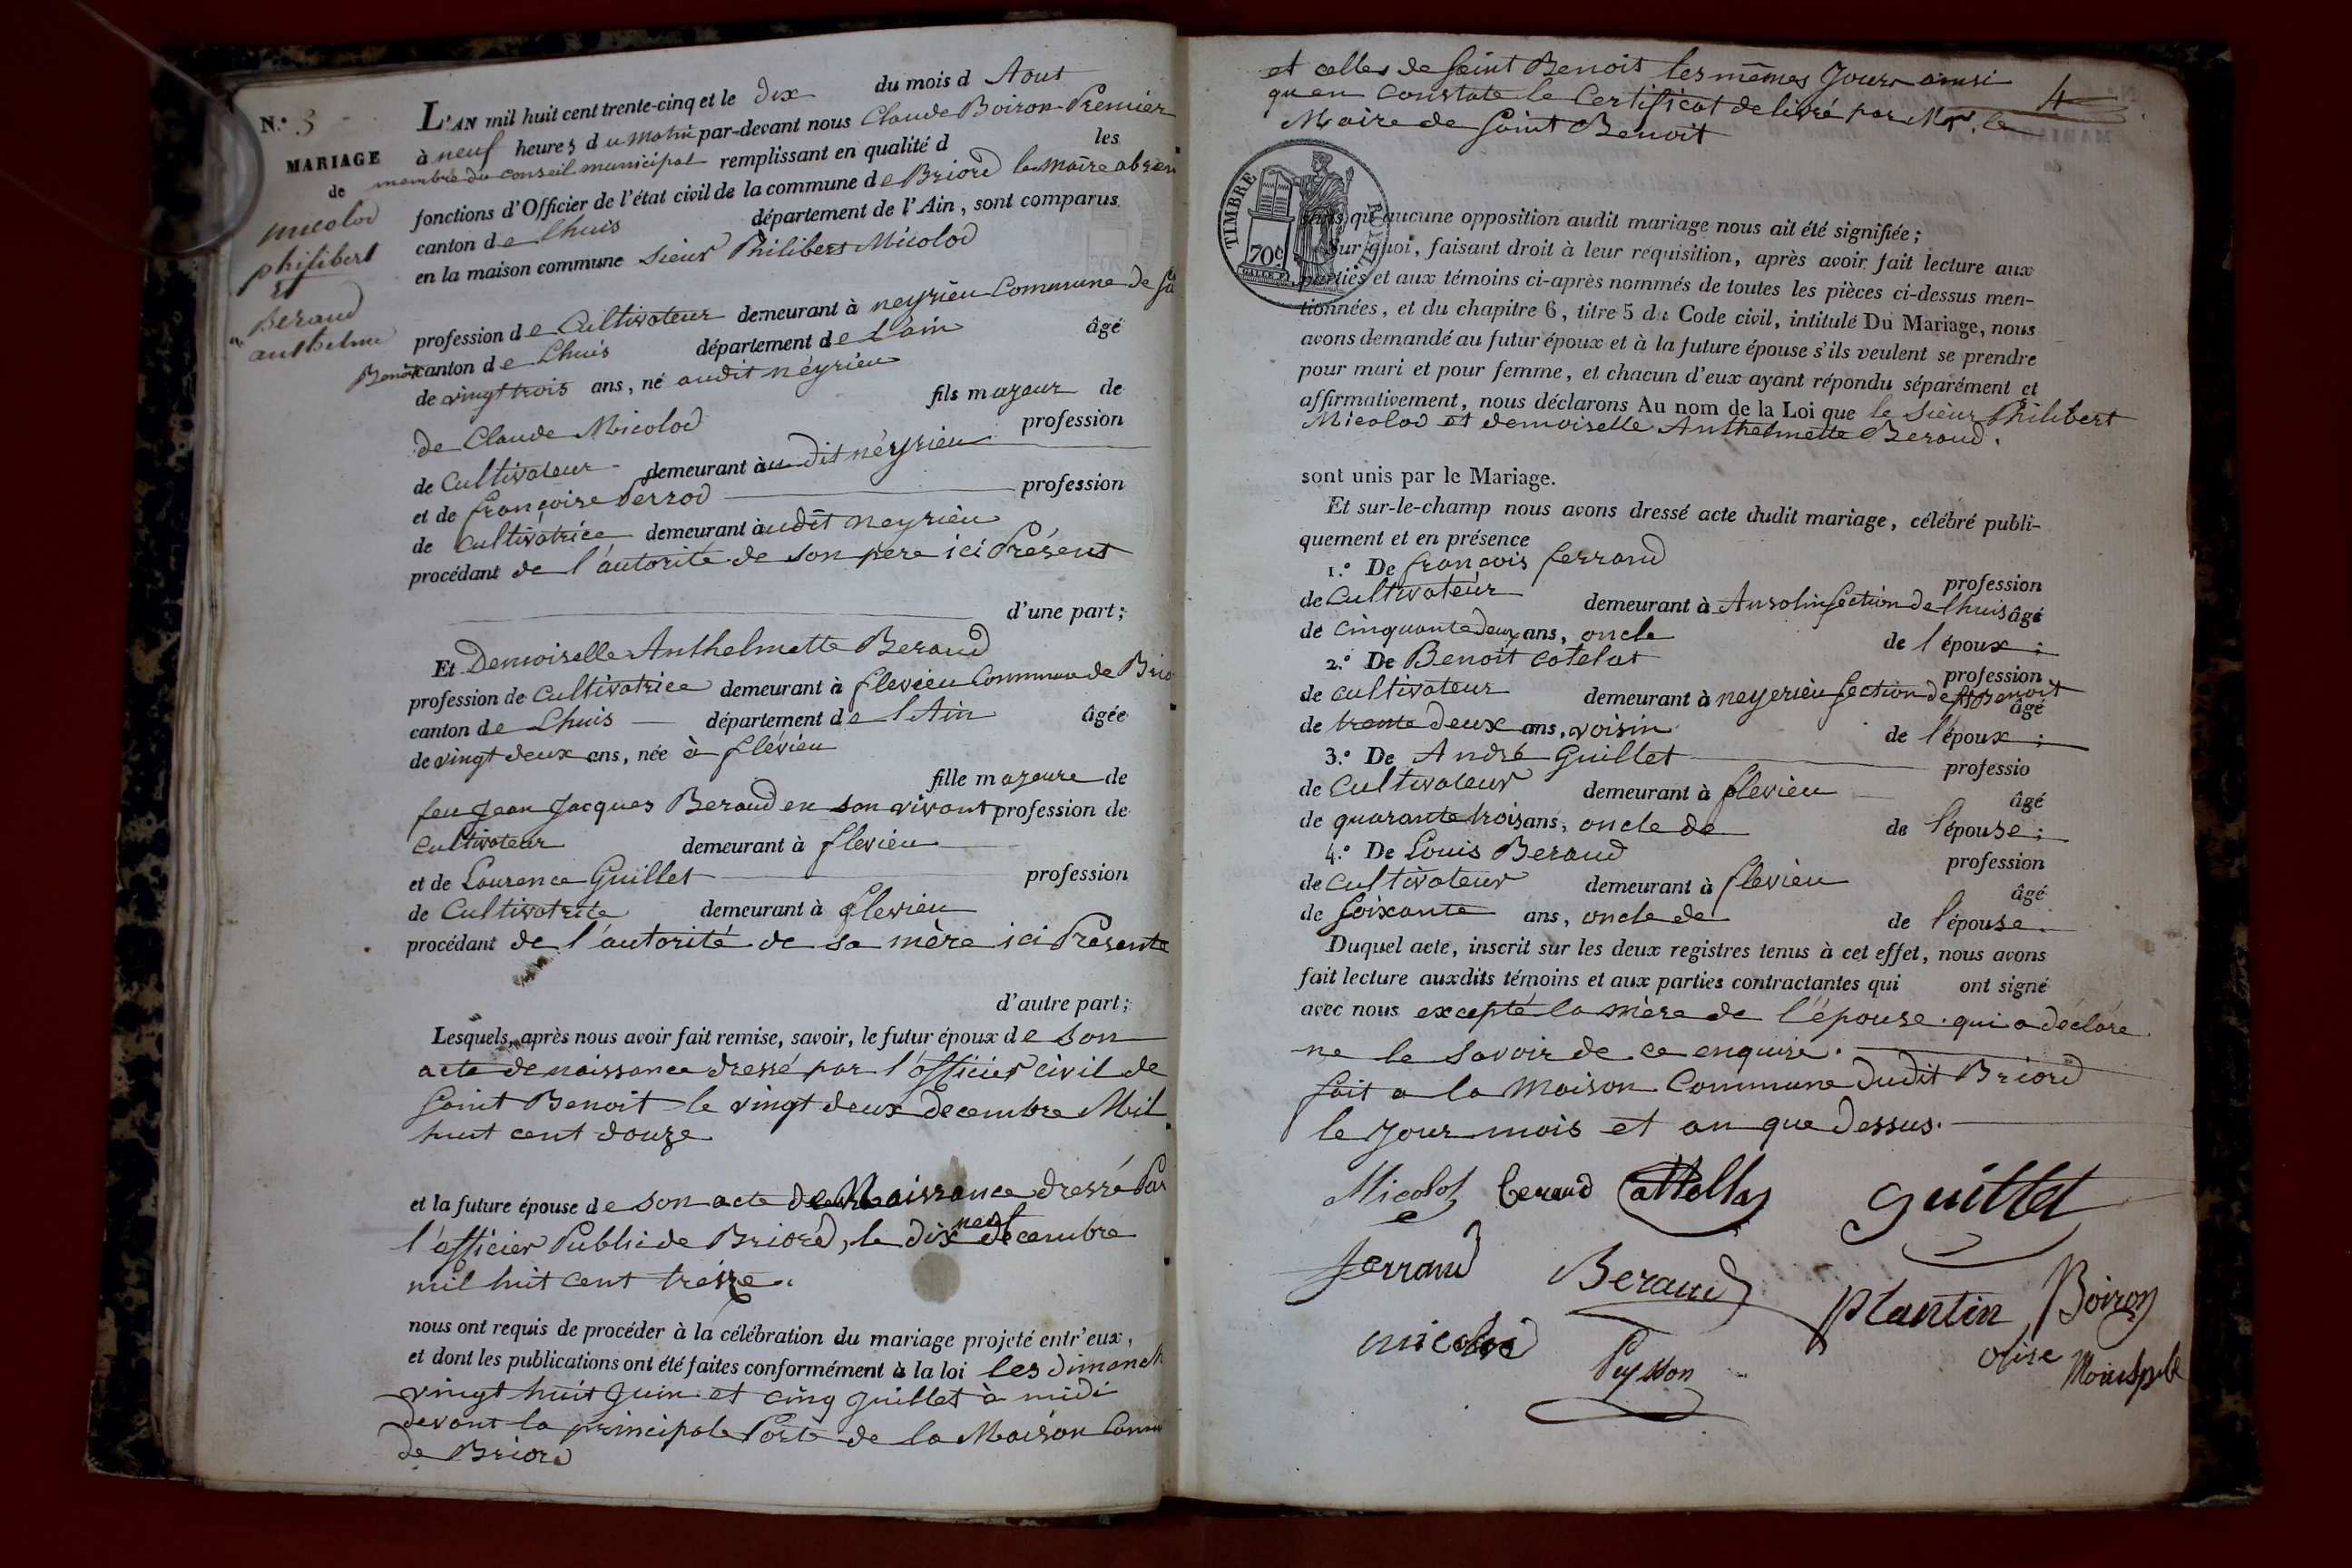 N.° 3
MARIAGE
de
micolod
philibert
Et
Beraud
anthelme
L'AN mil huit cent trente-cinq et le dix du mois d Aout
à neuf heures du matin par-devant nous Claude Boiron Premier
membre du conseil municipal remplissant en qualité d les
fonctions d'Officier de l'état civil de la commune de Briord le maire absen
canton de Lhuis département de l'Ain, sont comparus
en la maison commune sieur Philibert Micolod
profession de Cultivateur demeurant à neyrieu Commune de St
Benoit canton de Lhuis département de L'ain âgé
de vingt trois ans, né audit néyrieu
fils majeur de
de Claude Micolod profession
de Cultivateur demeurant audit néyrieu
et de françoise Perrod profession
de Cultivatrice demeurant audit neyrieu
procédant de l'autorité de son pere ici Présent
d'une part;
Et Demoiselle Anthelmette Beraud
profession de cultivatrice demeurant à flevieu Commune de Brio
canton de Lhuis département de l'Ain âgée
de vingt deux ans, née à flévieu
fille majeure de
feu Jean Jacques Beraud en son vivant profession de
Cultivateur demeurant à flevieu
et de Laurence Guillet profession
de Cultivatrice demeurant à flevieu
procédant de l'autorité de sa mère ici Presente
d'autre part;
Lesquels, après nous avoir fait remise, savoir, le futur époux de son
acte de naissance dressé par l'officier civil de
Saint Benoit le vingt deux decembre Mil
huit cent douze
et la future épouse de son acte de Naissance dressé Par
l'officier Public de Briord, le dix neuf decembre
mil huit cent treize.
nous ont requis de procéder à la célébration du mariage projeté entr'eux,
et dont les publications ont été faites conformément à la loi les dimanch
vingt huit Juin et cinq juillet à midi
devant la principale Porte de la Maison Comm
de Briord
et celles de Saint Benoit les mêmes Jours ainsi
qu'en constate le Certificat delivré par Mr. le
Maire de Saint Benoit
4
TIMBRE ROYAL
70c
sans qu'aucune opposition audit mariage nous ait été signifiée;
Sur quoi, faisant droit à leur réquisition, après avoir fait lecture aux
parties et aux témoins ci-après nommés de toutes les pièces ci-dessus men-
tionnées, et du chapitre 6, titre 5 du Code civil, intitulé Du Mariage, nous
avons demandé au futur époux et à la future épouse s'ils veulent se prendre
pour mari et pour femme, et chacun d'eux ayant répondu séparément et
affirmativement, nous déclarons Au nom de la Loi que le sieur Philibert
Micolod et demoiselle Anthelmette Beraud.
sont unis par le Mariage.
Et sur-le-champ nous avons dressé acte dudit mariage, célébré publi-
quement et en présence
1.° De françois ferrand profession
de Cultivateur demeurant à Ansolin section de lhuis âgé
de cinquante deux ans, oncle de l'époux;
2.° De Benoit Cotelat profession
de cultivateur demeurant à neyerieu section de St Benoit âgé
de trente deux ans, voisin de l'époux;
3.° De André Guillet professio
de Cultivateur demeurant à flevieu âgé
de quarante trois ans, oncle de de l'épouse;
4.° De Louis Beraud profession
de cultivateur demeurant à flevieu âgé
de soixante ans, oncle de de l'épouse.
Duquel acte, inscrit sur les deux registres tenus à cet effet, nous avons
fait lecture auxdits témoins et aux parties contractantes qui ont signé
avec nous excepté la mère de l'épouse qui a déclaré
ne le savoir de ce enquise.
fait a la Maison Commune dudit Briord
le jour mois et an que dessus.
Micolod beraud Cattellas guillet
ferrand Beraud plantin Boiron
micolod Puysson